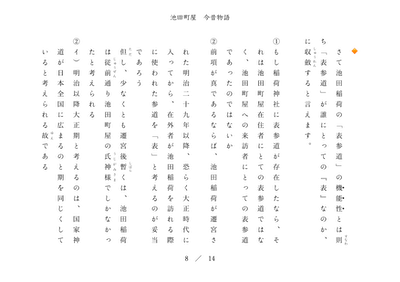 池田町屋 今昔物語
さて池田稲荷の「表参道」の機能性とは則
ち「表参道」が誰にとっての『表』なのか、
に収斂すると言えます。
①もし稲荷神社に表参道が存在したなら、そ
れは池田町屋在住者にとっての表参道ではな
く、池田町屋への来訪者にとっての表参道
であったのではないか
②前項が真であるならば、池田稲荷が遷宮さ
れた明治二十九年以降、恐らく大正時代に
入ってから、在外者が池田稲荷を訪れる際
に使われた参道を「表」と考えるのが妥当
であろう
但し、少なくとも遷宮後暫くは、池田稲荷
は従前通り池田町屋の氏神様でしかなかっ
たと考えられる
②イ）明治以降大正期と考えるのは、国家神
道が日本全国に広まるのと期を同じくして
いると考えられる故である
8 / 14